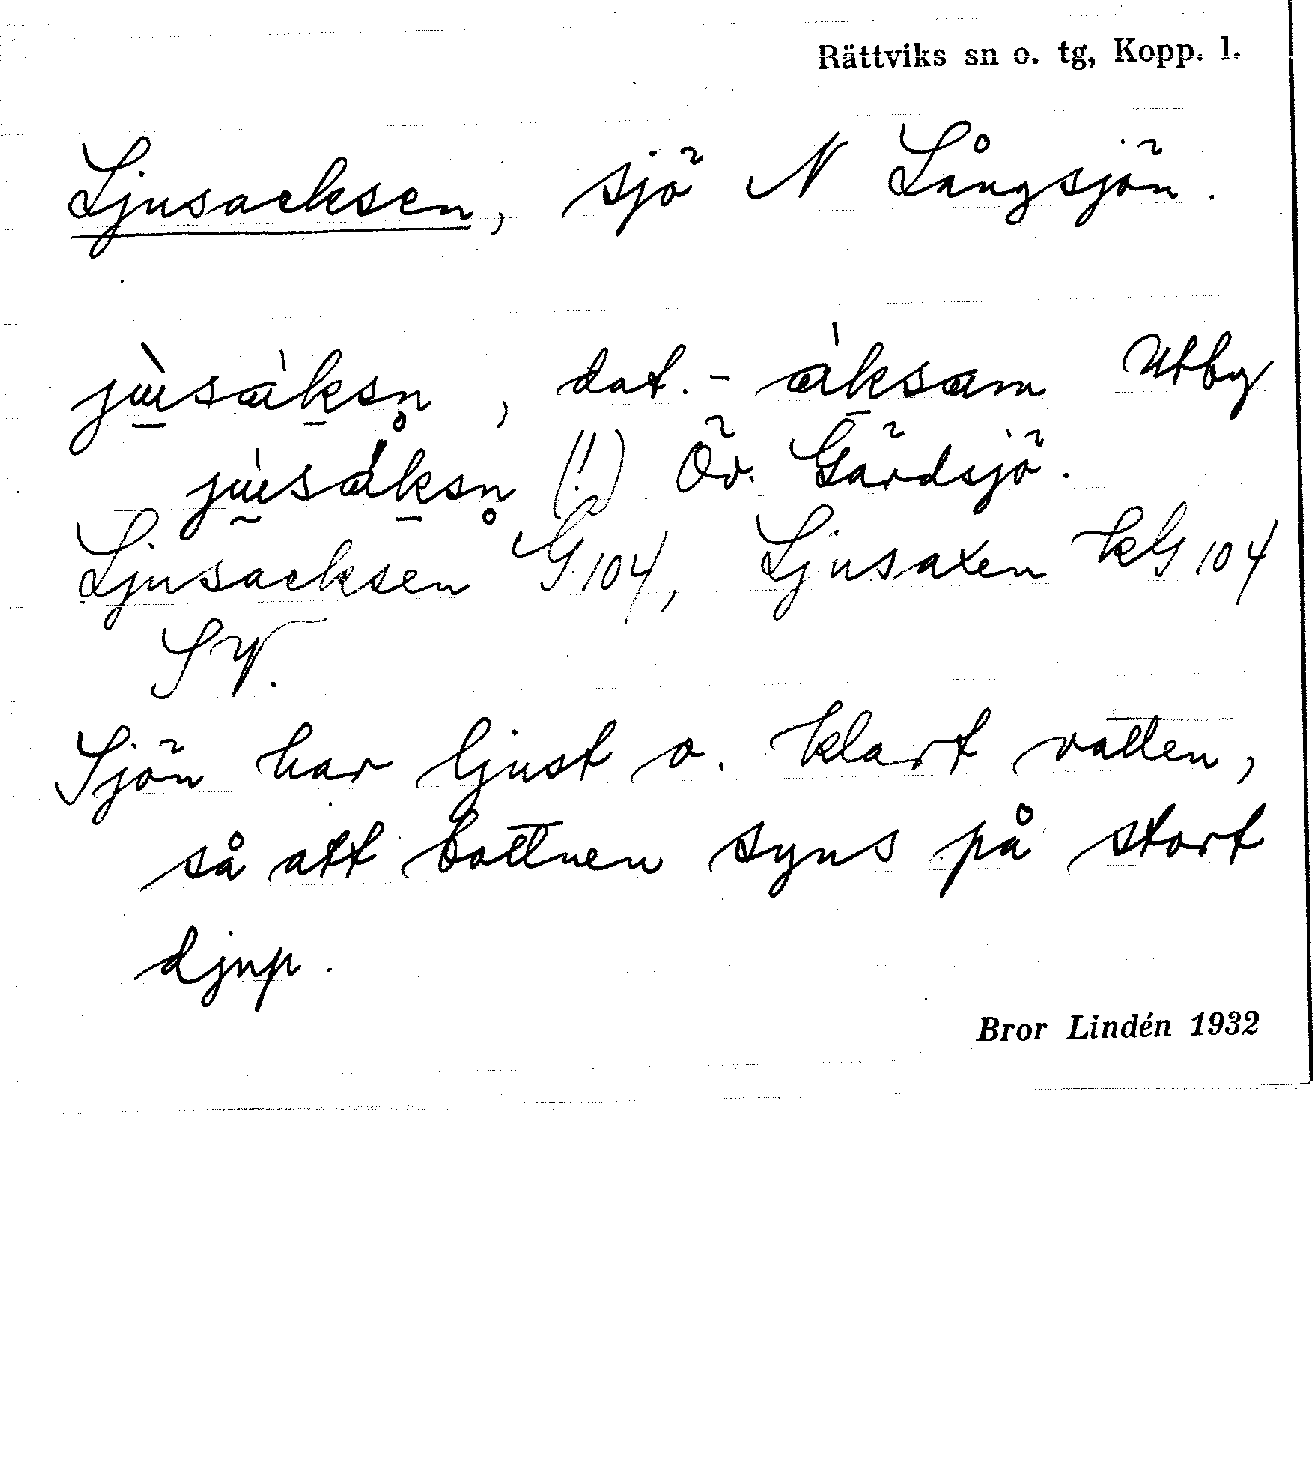 Rättviks sn o. tg, Kopp. l.
Ljusacksen, sjö N Långsjön.
jùsáksn̥, dat. -áksam Utby
jùsáksn̥ (!) Öv. Gärdsjö.
Ljusacksen G 104, Ljusaxen kG 104
SV.
Sjön har ljust o. klart vatten,
så att bottnen syns på stort
djup.
Bror Lindén 1932